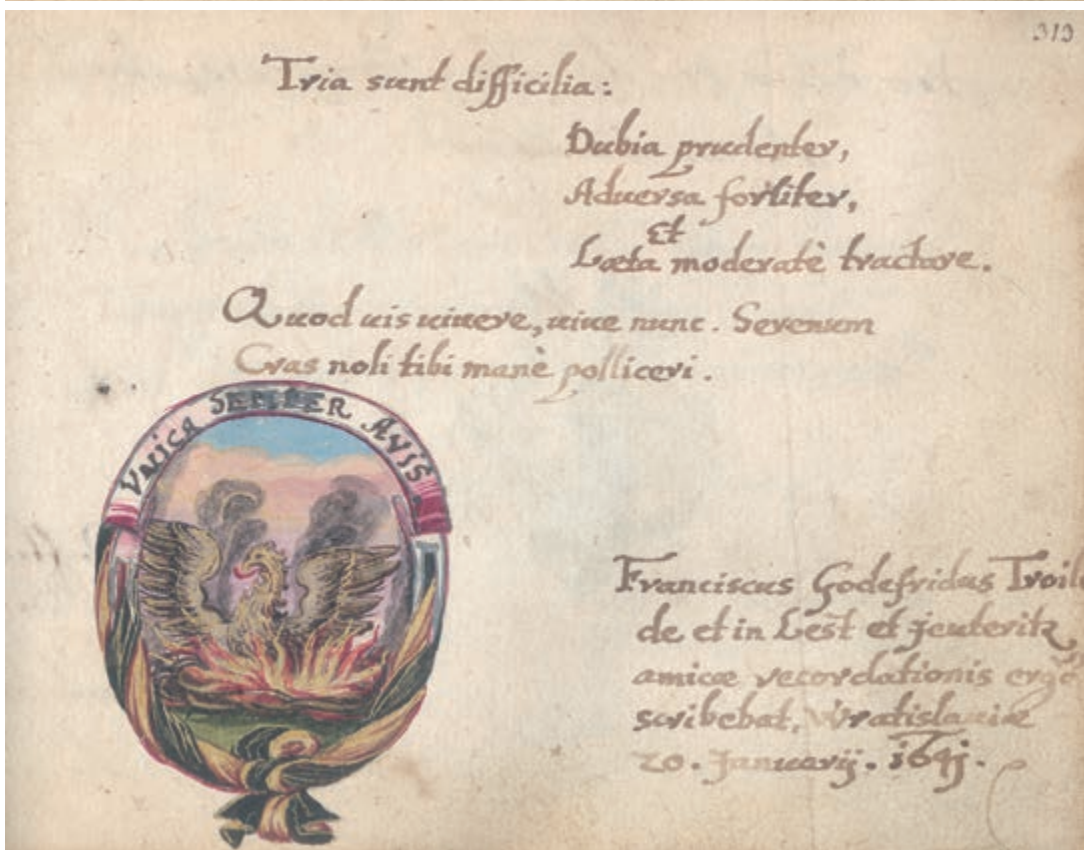 313
Tria sunt difficilia:
Dubia prudenter,
Adversa fortiter,
Et
Læta moderatè tractare.
Quod uis uiuere, uiue nunc. Serenum
Cras noli tibi manè polliceri.
VNICA SEMPER AVIS
Franciscus Godefridus Troil
de et in Lest et Jeuteritz
amicæ recordationis ergò
scribebat, Wratislaviæ
20. Januarij. 1641.